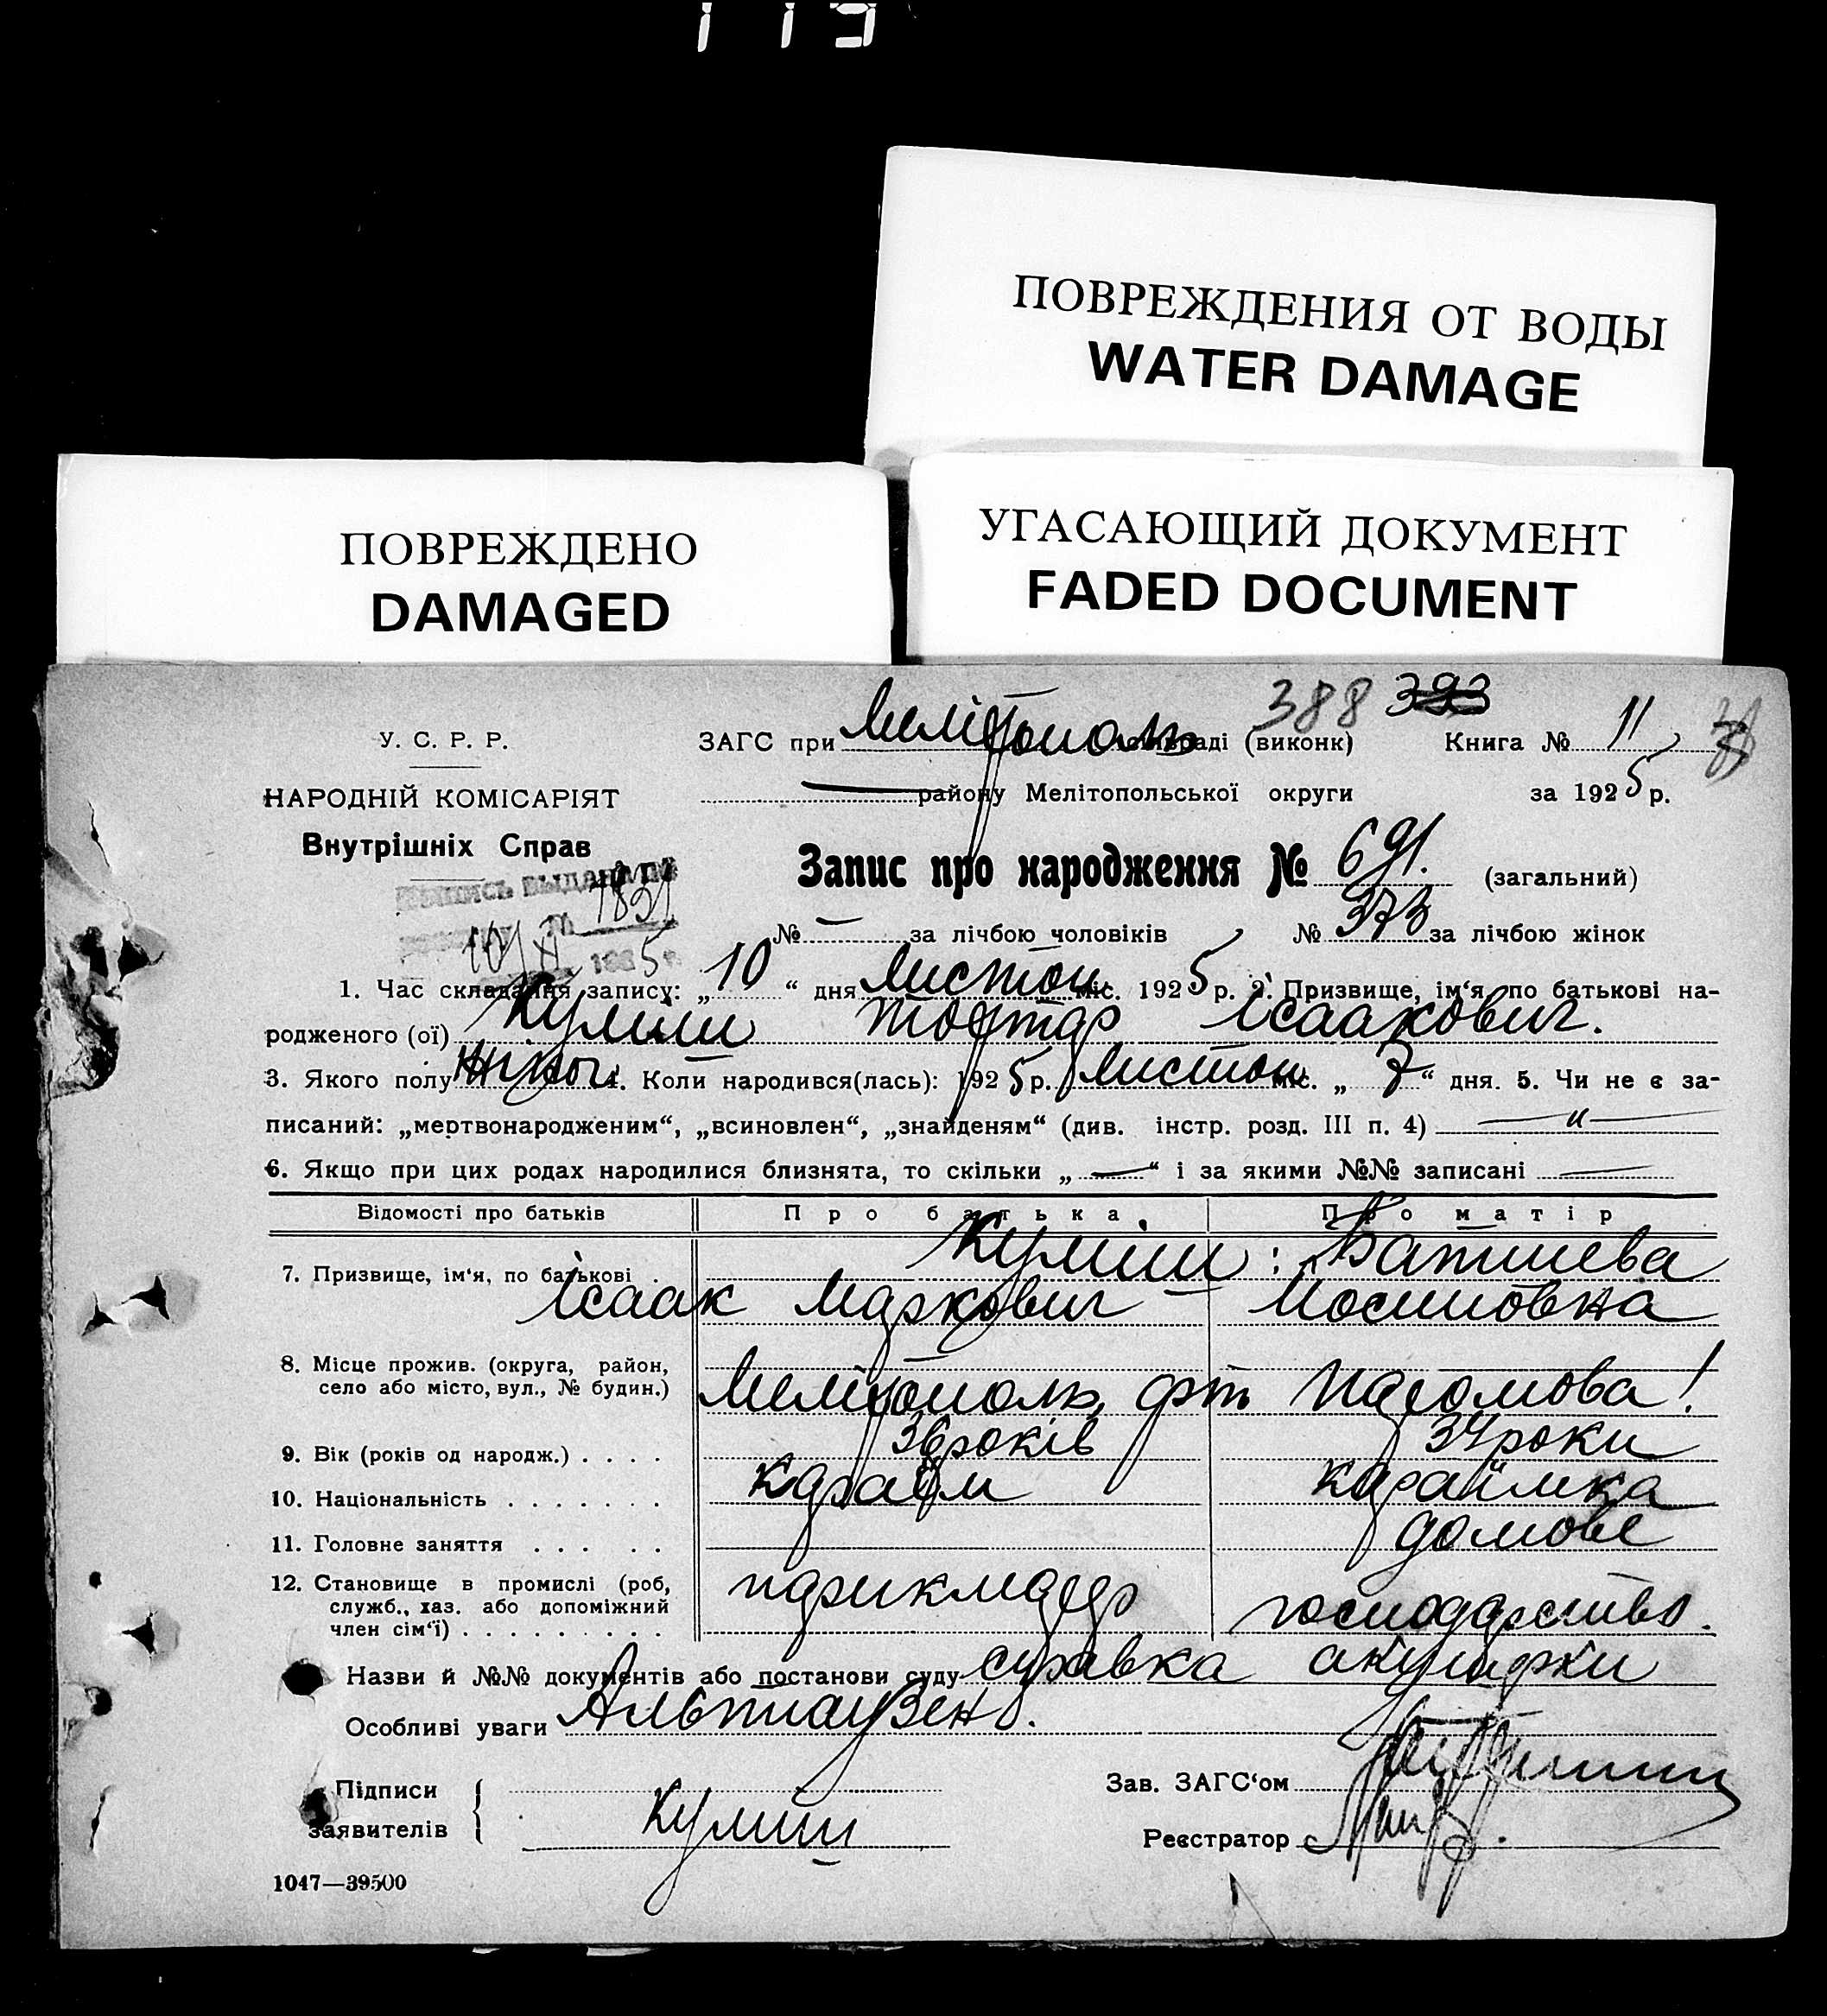 119
ПОВРЕЖДЕНИЯ ОТ ВОДЫ
WATER DAMAGE
ПОВРЕЖДЕНО
DAMAGED
УГАСАЮЩИЙ ДОКУМЕНТ
FADED DOCUMENT
388 393
У. С. Р. Р.
ЗАГС при Мелітополь (виконк) Книга № 11
НАРОДНІЙ КОМІСАРІЯТ
району Мелітопольської округи за 1925 р.
Внутрішніх Справ
Запис про народження № 691. (загальний)
№ — за лічбою чоловіків № 373 за лічбою жінок
1. Час складання запису: „10“ дня Листоп. міс. 1925 р. 2. Призвище, ім‘я, по батькові на-
родженого (ої) Кулиш Ісаакович.
3. Якого полу жіноч. 4. Коли народився(лась): 1925 р. Листоп. міс. „7“ дня. 5. Чи не є за-
писаний: „мертвонародженим“, „всиновлен“, „знайденям“ (див. інстр. розд. III п. 4) —„—
6. Якщо при цих родах народилися близнята, то скільки „—“ і за якими №№ записані —
Відомості про батьків Про батька Про матір
7. Призвище, ім‘я, по батькові . Кулиш : Батшева
Ісаак Маркович Йосиповна
8. Місце прожив. (округа, район,
село або місто, вул., № будин.) Мелітополь,
9. Вік (років од народж.) . . . . 36 років 34 роки
10. Національність . . . . . . . караїм караїмка
11. Головне заняття . . . . . домове
12. Становище в промислі (роб,
служб., хаз. або допоміжний
член сім‘ї) . . . . . . . . . парикмахер господарство.
Назви й №№ документів або постанови суду справка акушерки
Особливі уваги Альтгаузен.
Підписи
заявителів Кулиш
Зав. ЗАГС‘ом
Реєстратор
1047—39500